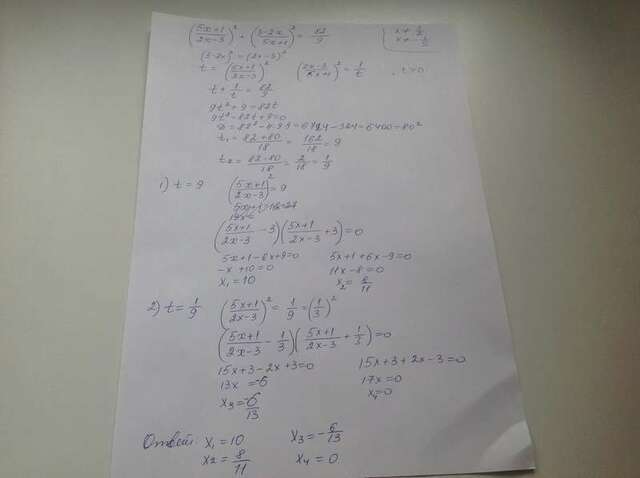 ((5x+1)/(2x-3))² + ((3-2x)/(5x+1))² = 82/9
x ≠ 3/2
x ≠ -1/5
(3-2x)² = (2x-3)²
t = ((5x+1)/(2x-3))² ((2x-3)/(5x+1))² = 1/t , t>0
t + 1/t = 82/9
9t²+9=82t
9t²-82t+9=0
D=82²-4·9·9=6724-324=6400=80²
t₁ = (82+80)/18 = 162/18 = 9
t₂ = (82-80)/18 = 2/18 = 1/9
1) t = 9 ((5x+1)/(2x-3))² = 9
((5x+1)/(2x-3) - 3)((5x+1)/(2x-3) + 3) = 0
5x+1-6x+9=0 5x+1+6x-9=0
-x+10=0 11x-8=0
x₁=10 x₂ = 8/11
2) t = 1/9 ((5x+1)/(2x-3))² = 1/9 = (1/3)²
((5x+1)/(2x-3) - 1/3)((5x+1)/(2x-3) + 1/3) = 0
15x+3-2x+3=0 15x+3+2x-3=0
13x=-6 17x=0
x₃ = -6/13 x₄=0
Ответ: x₁=10 x₃ = -6/13
x₂ = 8/11 x₄ = 0